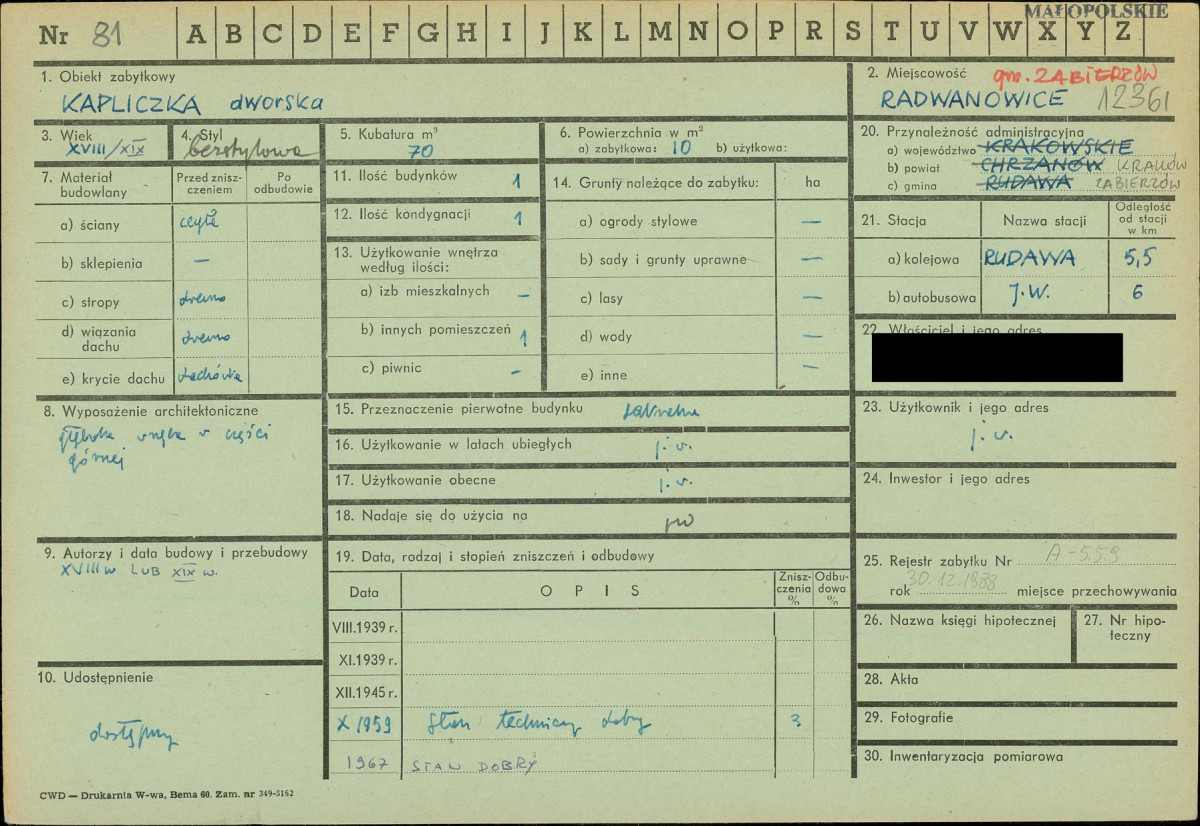 MAŁOPOLSKIE
Nr 81 A B C D E F G H I J K L M N O P R S T U V W X Y Z
1. Obiekt zabytkowy
KAPLICZKA dworska
2. Miejscowość gm. ZABIERZÓW
RADWANOWICE 12361
3. Wiek
XVIII/XIX
4. Styl
bezstylowa
5. Kubatura m³
70
6. Powierzchnia w m²
a) zabytkowa: 10 b) użytkowa:
7. Materiał budowlany
Przed zniszczeniem
Po odbudowie
a) ściany cegła
b) sklepienia —
c) stropy drewno
d) wiązania dachu drewno
e) krycie dachu dachówka
8. Wyposażenie architektoniczne
głęboka wnęka w części
górnej
9. Autorzy i data budowy i przebudowy
XVIII w LUB XIX w.
10. Udostępnienie
dostępny
11. Ilość budynków 1
12. Ilość kondygnacji 1
13. Użytkowanie wnętrza
według ilości:
a) izb mieszkalnych –
b) innych pomieszczeń 1
c) piwnic –
14. Grunty należące do zabytku: ha
a) ogrody stylowe —
b) sady i grunty uprawne —
c) lasy —
d) wody —
e) inne —
15. Przeznaczenie pierwotne budynku sakralne
16. Użytkowanie w latach ubiegłych j. w.
17. Użytkowanie obecne j. w.
18. Nadaje się do użycia na jw
19. Data, rodzaj i stopień zniszczeń i odbudowy
Data O P I S Zniszczenia % Odbudowa %
VIII.1939 r.
XI.1939 r.
XII.1945 r.
X 1959 Stan techniczny dobry 3
1967 STAN DOBRY
20. Przynależność administracyjna
a) województwo KRAKOWSKIE
b) powiat CHRZANÓW KRAKÓW
c) gmina RUDAWA ZABIERZÓW
21. Stacja Nazwa stacji Odległość od stacji w km
a) kolejowa RUDAWA 5,5
b) autobusowa J.W. 6
22. Właściciel i jego adres
23. Użytkownik i jego adres
j. w.
24. Inwestor i jego adres
25. Rejestr zabytku Nr A-559
rok 30.12.1988 miejsce przechowywania
26. Nazwa księgi hipotecznej
27. Nr hipoteczny
28. Akta
29. Fotografie
30. Inwentaryzacja pomiarowa
CWD — Drukarnia W-wa, Bema 60. Zam. nr 349-5162